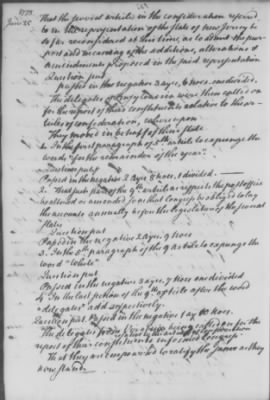 1778
June 25
That the several articles in the confederation referred
to in the representation of the state of New Jersey be
so far reconsidered at this time, as to admit the pur-
port and meaning of the additions, alterations &
amendments proposed in the said representation
Question put
passed in the negative 3 ayes, 6 noes, one divided.
The delegates of Pennsylvania were then called on
for the report of their constituents in relation to the ar-
ticles of confederation, whereupon
They moved in behalf of their state
1. In the first paragraph of 5th article to expunge the
words "for the remainder of the year"
Question put
Passed in the negative 2 ayes 8 noes, 1 divided
2. That such part of the 9th article as respects the post office
be altered or amended so as that congress be obliged to lay
the accounts annually before the legislatures of the several
states
Question put
Passed in the negative 2 ayes 9 noes
3. In the 5th paragraph of the 9 article to expunge the
word "white"
Question put
Passed in the negative 3 ayes, 7 noes one divided
4 In the last section of the 9th article after the word
"delegates" add respectively.
Question put. Passed in the negative 1 ay 10 noes.
The delegates from being called on for the
report of their constituents informed congress
That they are empowered to ratify the same as they
now stand.